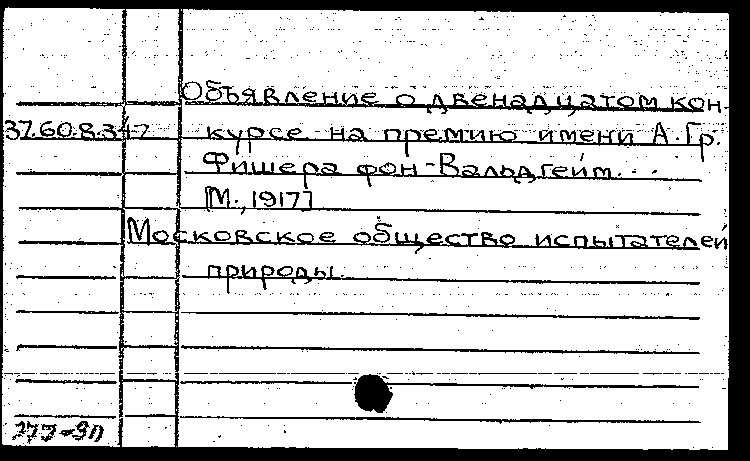 Объявление о двенадцатом кон-
37.60.8.347 курсе на премию имени А.Гр.
Фишера фон-Вальдгейм...
[М., 1917]
Московское общество испытателей
природы.